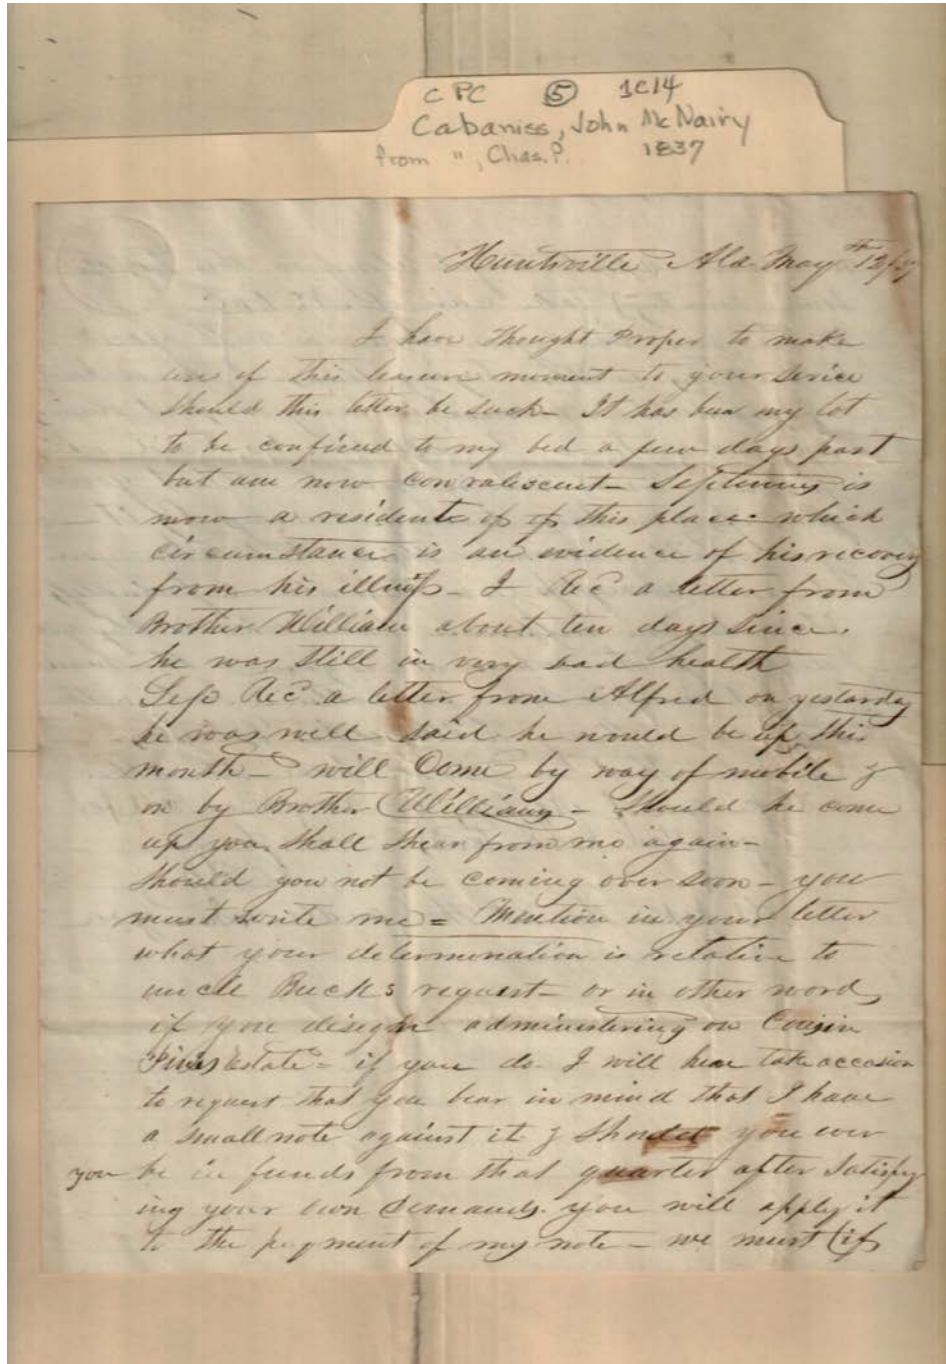 CPC 5 1C14
Cabaniss, John McNairy
from ", Chas. P. 1837
Huntsville Ala May 12th / 37
I have thought Proper to make
use of this leasure moment to your service
should this letter be such - It has been my lot
to be confined to my bed a few days past
but am now convalescent - Septimus is
now a resident of of this place which
circumstance is an evidence of his recovery
from his illness - I Rec a letter from
Brother William about ten days since.
he was still in very bad health
Sep Rec a letter from Alfred on yestarday
he was well said he would be up this
month - will Come by way of mobile &
on by Brother Williams - Should he come
up you shall hear from me again -
Should you not be coming over soon - you
must write me = Mention in your letter
what your determination is relative to
uncle Bucks request - or in other word,
if you design administering on Cousin
estate - if you do I will here take occasion
to request that you bear in mind that I have
a small note against it & should you ever
you be in funds from that quarter after satisfy
ing your own demands you will apply it
to the payment of my note - we must (if